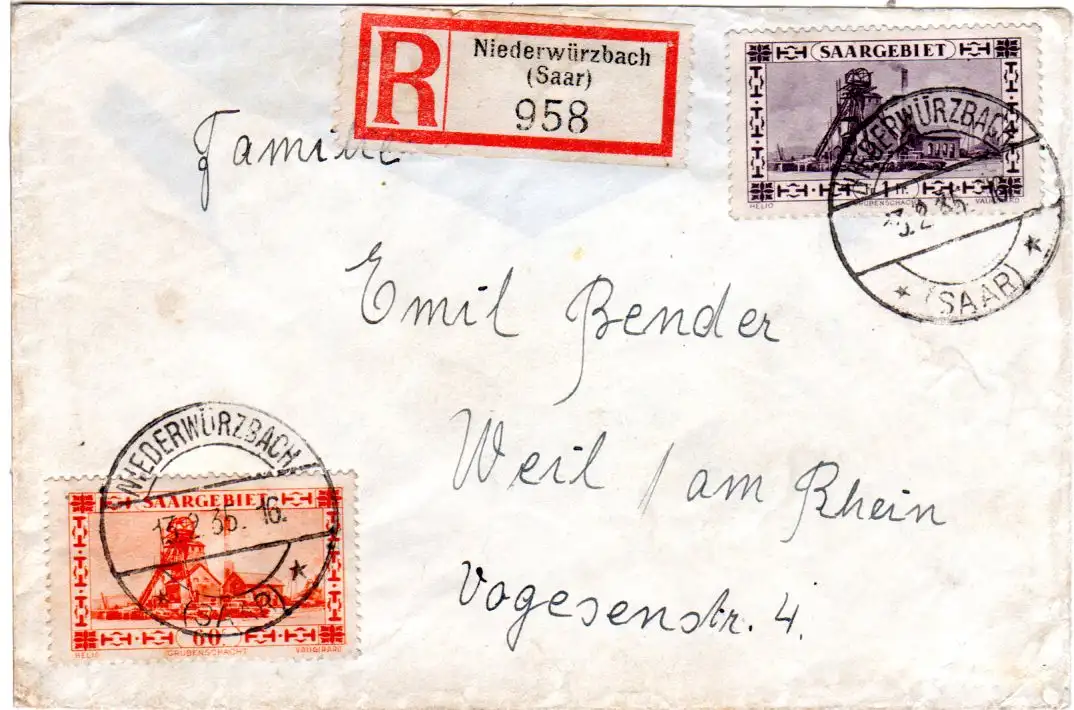 R Niederwürzbach
(Saar)
958
SAARGEBIET
1 Fr.
HELIO GRUBENSCHACHT VAUGIRARD
NIEDERWÜRZBACH
13.2.35. 16.
★ (SAAR) ★
Familie
Emil Bender
Weil / am Rhein
Vogesenstr. 4.
NIEDERWÜRZBACH
SAARGEBIET
13.2.35. 16.
★ (SAAR) ★
60
HELIO GRUBENSCHACHT VAUGIRARD